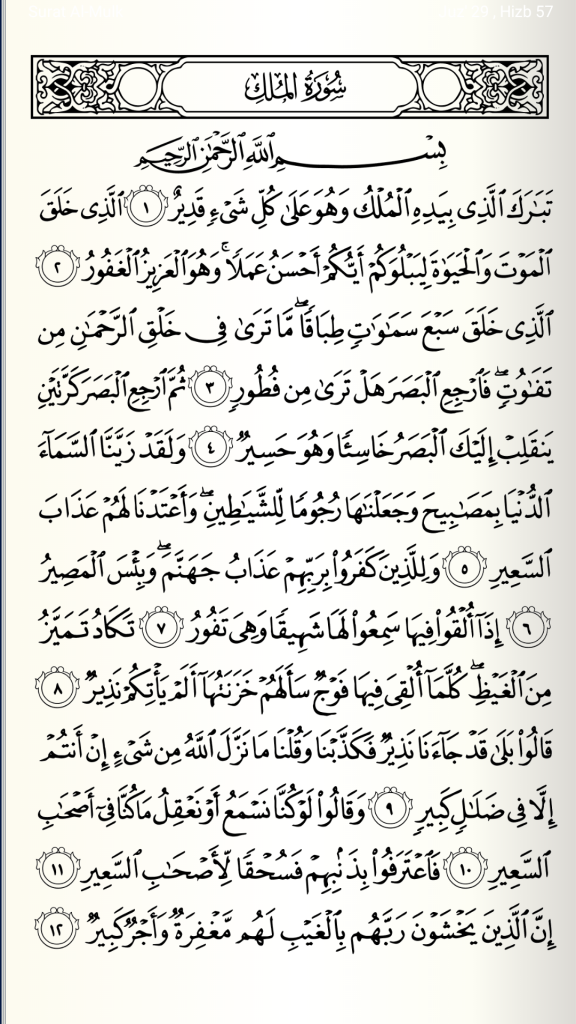 Hizb 57
سُورَةُ المُلْكِ
بِسْمِ ٱللَّهِ ٱلرَّحْمَٰنِ ٱلرَّحِيمِ
تَبَٰرَكَ ٱلَّذِى بِيَدِهِ ٱلْمُلْكُ وَهُوَ عَلَىٰ كُلِّ شَىْءٍ قَدِيرٌ ١ ٱلَّذِى خَلَقَ
ٱلْمَوْتَ وَٱلْحَيَوٰةَ لِيَبْلُوَكُمْ أَيُّكُمْ أَحْسَنُ عَمَلًا ۚ وَهُوَ ٱلْعَزِيزُ ٱلْغَفُورُ ٢
ٱلَّذِى خَلَقَ سَبْعَ سَمَٰوَٰتٍ طِبَاقًا ۖ مَّا تَرَىٰ فِى خَلْقِ ٱلرَّحْمَٰنِ مِن
تَفَٰوُتٍ ۖ فَٱرْجِعِ ٱلْبَصَرَ هَلْ تَرَىٰ مِن فُطُورٍ ٣ ثُمَّ ٱرْجِعِ ٱلْبَصَرَ كَرَّتَيْنِ
يَنقَلِبْ إِلَيْكَ ٱلْبَصَرُ خَاسِئًا وَهُوَ حَسِيرٌ ٤ وَلَقَدْ زَيَّنَّا ٱلسَّمَآءَ
ٱلدُّنْيَا بِمَصَٰبِيحَ وَجَعَلْنَٰهَا رُجُومًا لِّلشَّيَٰطِينِ ۖ وَأَعْتَدْنَا لَهُمْ عَذَابَ
ٱلسَّعِيرِ ٥ وَلِلَّذِينَ كَفَرُوا۟ بِرَبِّهِمْ عَذَابُ جَهَنَّمَ ۖ وَبِئْسَ ٱلْمَصِيرُ
٦ إِذَآ أُلْقُوا۟ فِيهَا سَمِعُوا۟ لَهَا شَهِيقًا وَهِىَ تَفُورُ ٧ تَكَادُ تَمَيَّزُ
مِنَ ٱلْغَيْظِ ۖ كُلَّمَآ أُلْقِىَ فِيهَا فَوْجٌ سَأَلَهُمْ خَزَنَتُهَآ أَلَمْ يَأْتِكُمْ نَذِيرٌ ٨
قَالُوا۟ بَلَىٰ قَدْ جَآءَنَا نَذِيرٌ فَكَذَّبْنَا وَقُلْنَا مَا نَزَّلَ ٱللَّهُ مِن شَىْءٍ إِنْ أَنتُمْ
إِلَّا فِى ضَلَٰلٍ كَبِيرٍ ٩ وَقَالُوا۟ لَوْ كُنَّا نَسْمَعُ أَوْ نَعْقِلُ مَا كُنَّا فِىٓ أَصْحَٰبِ
ٱلسَّعِيرِ ١٠ فَٱعْتَرَفُوا۟ بِذَنۢبِهِمْ فَسُحْقًا لِّأَصْحَٰبِ ٱلسَّعِيرِ ١١
إِنَّ ٱلَّذِينَ يَخْشَوْنَ رَبَّهُم بِٱلْغَيْبِ لَهُم مَّغْفِرَةٌ وَأَجْرٌ كَبِيرٌ ١٢